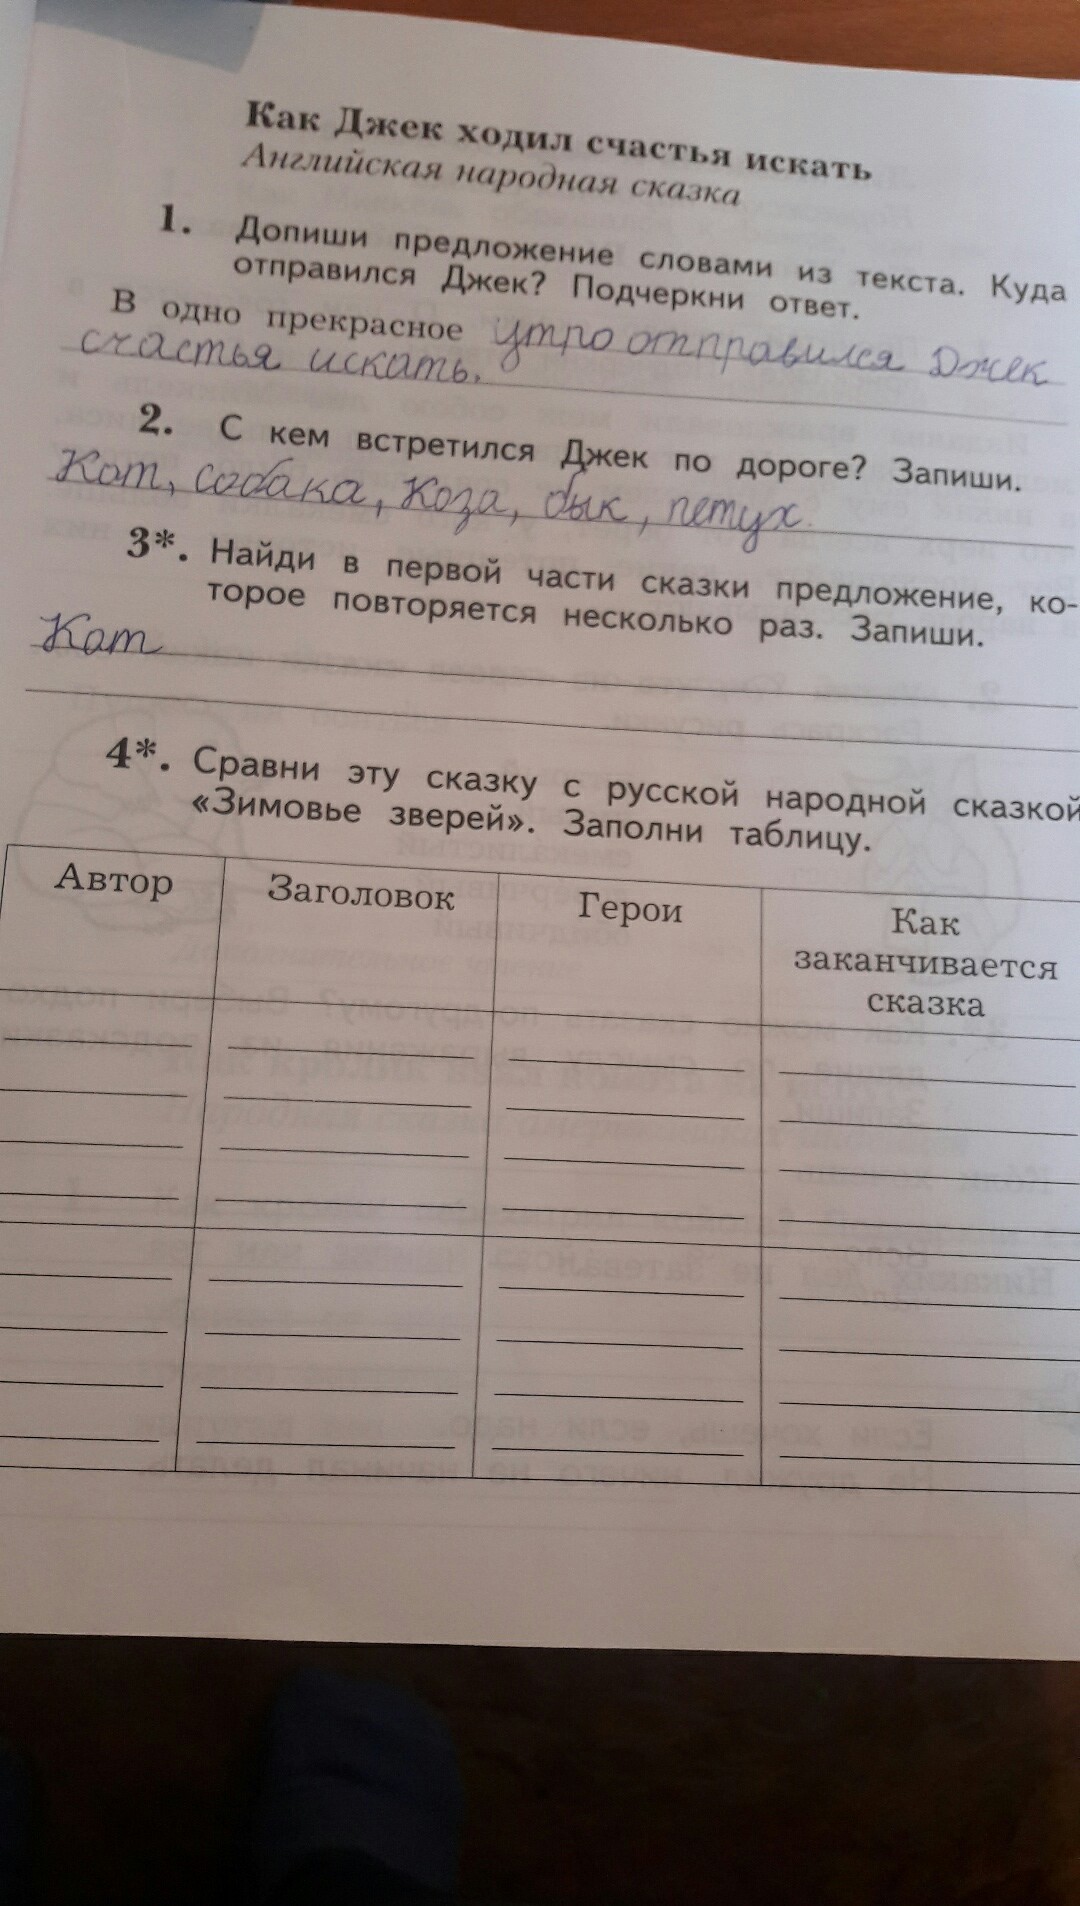 Как Джек ходил счастья искать
Английская народная сказка
1. Допиши предложение словами из текста. Куда
отправился Джек? Подчеркни ответ.
В одно прекрасное утро отправился Джек
счастья искать.
2. С кем встретился Джек по дороге? Запиши.
Кот, собака, коза, бык, петух.
3*. Найди в первой части сказки предложение, ко-
торое повторяется несколько раз. Запиши.
Кот
4*. Сравни эту сказку с русской народной сказкой
«Зимовье зверей». Заполни таблицу.
Автор Заголовок Герои Как
заканчивается
сказка